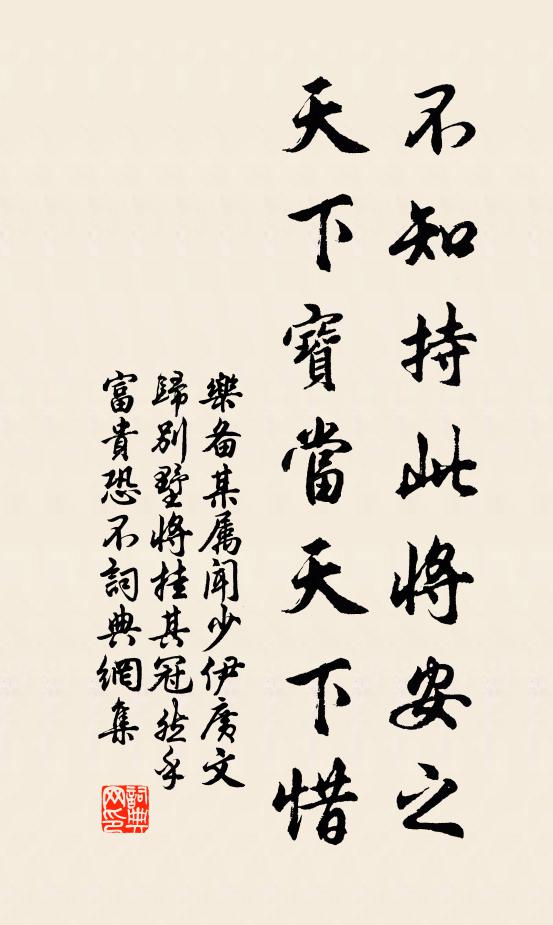 不知持此將安之
天下寶當天下惜
樂备某属闻少伊廣文
歸别墅將挂其冠然乎
富貴恐不詞典網集
詞典网印